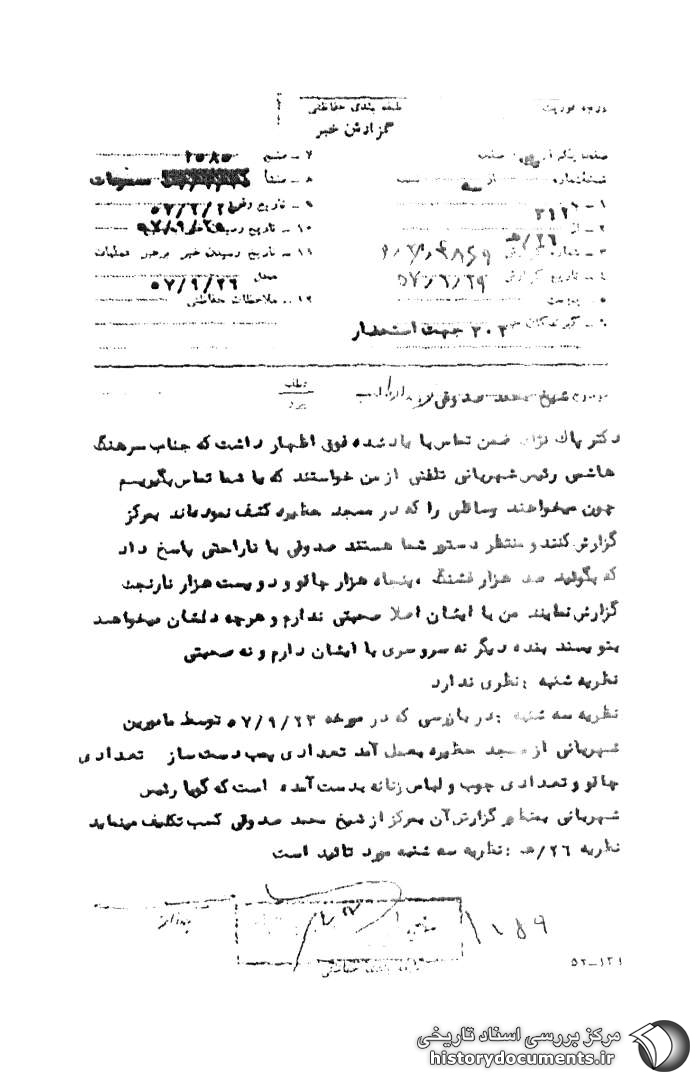 درجه فوریت
طبقه بندی حفاظتی
گزارش خبر
۷ - منبع ۲۰۸۵
نسخه شماره از سه نسخه
۸ - منشأ
۱ - به ۳۱۲
۹ - تاریخ وقوع
۲ - از ۲۶/ه
۱۰ - تاریخ رسیدن خبر
۳ - شماره گزارش
۱۱ - تاریخ رسیدن خبر برهبر عملیات
۴ - تاریخ گزارش
محل ۵۷/۹/۲۶
۵ - پیوست
۱۲ - ملاحظات حفاظتی
۶ - گیرندگان خبر ۳۰۲ جهت استحضار
موضوع شیخ محمد صدوقی
عطف
پیرو
دکتر پاک نژاد ضمن تماس با یاد شده فوق اظهار داشت که جناب سرهنگ
هاشمی رئیس شهربانی تلفنی از من خواستند که با شما تماس بگیریم
چون میخواهند وسائلی را که در مسجد حظیره کشف نموده‌اند بمرکز
گزارش کنند و منتظر دستور شما هستند صدوقی با ناراحتی پاسخ داد
که بگوئید صد هزار فشنگ ، پنجاه هزار چاقو و دویست هزار نارنجک
گزارش نمایند من با ایشان اصلا صحبتی ندارم و هرچه دلشان میخواهد
بنویسند بنده دیگر نه سروسری با ایشان دارم و نه صحبتی
نظریه شنبه : نظری ندارد
نظریه سه شنبه : در بازرسی که در مورخه ۵۷/۹/۲۳ توسط مامورین
شهربانی از مسجد حظیره بعمل آمد تعدادی بمب دست ساز تعدادی
چاقو و تعدادی چوب و لباس زنانه بدست آمده است که گویا رئیس
شهربانی بمنظور گزارش آن بمرکز از شیخ محمد صدوقی کسب تکلیف مینماید
نظریه ۲۶/ه : نظریه سه شنبه مورد تائید است
طبقه بندی حفاظتی
۵۲-۱۲۱
مرکز بررسی اسناد تاریخی
historydocuments.ir